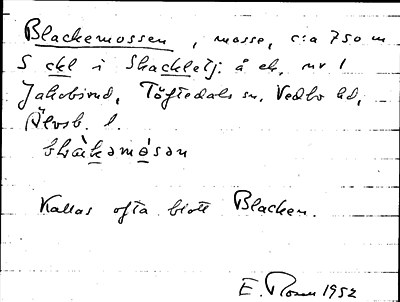 Blackemossen, mosse, c:a 750 m
S ckl i Shackletj. å ek, nr 1
Jakobsrud, Töftedals sn, Vedbo hd,
Älvsb. l.
Kallas ofta blott Blacken.
E. Rosen 1952